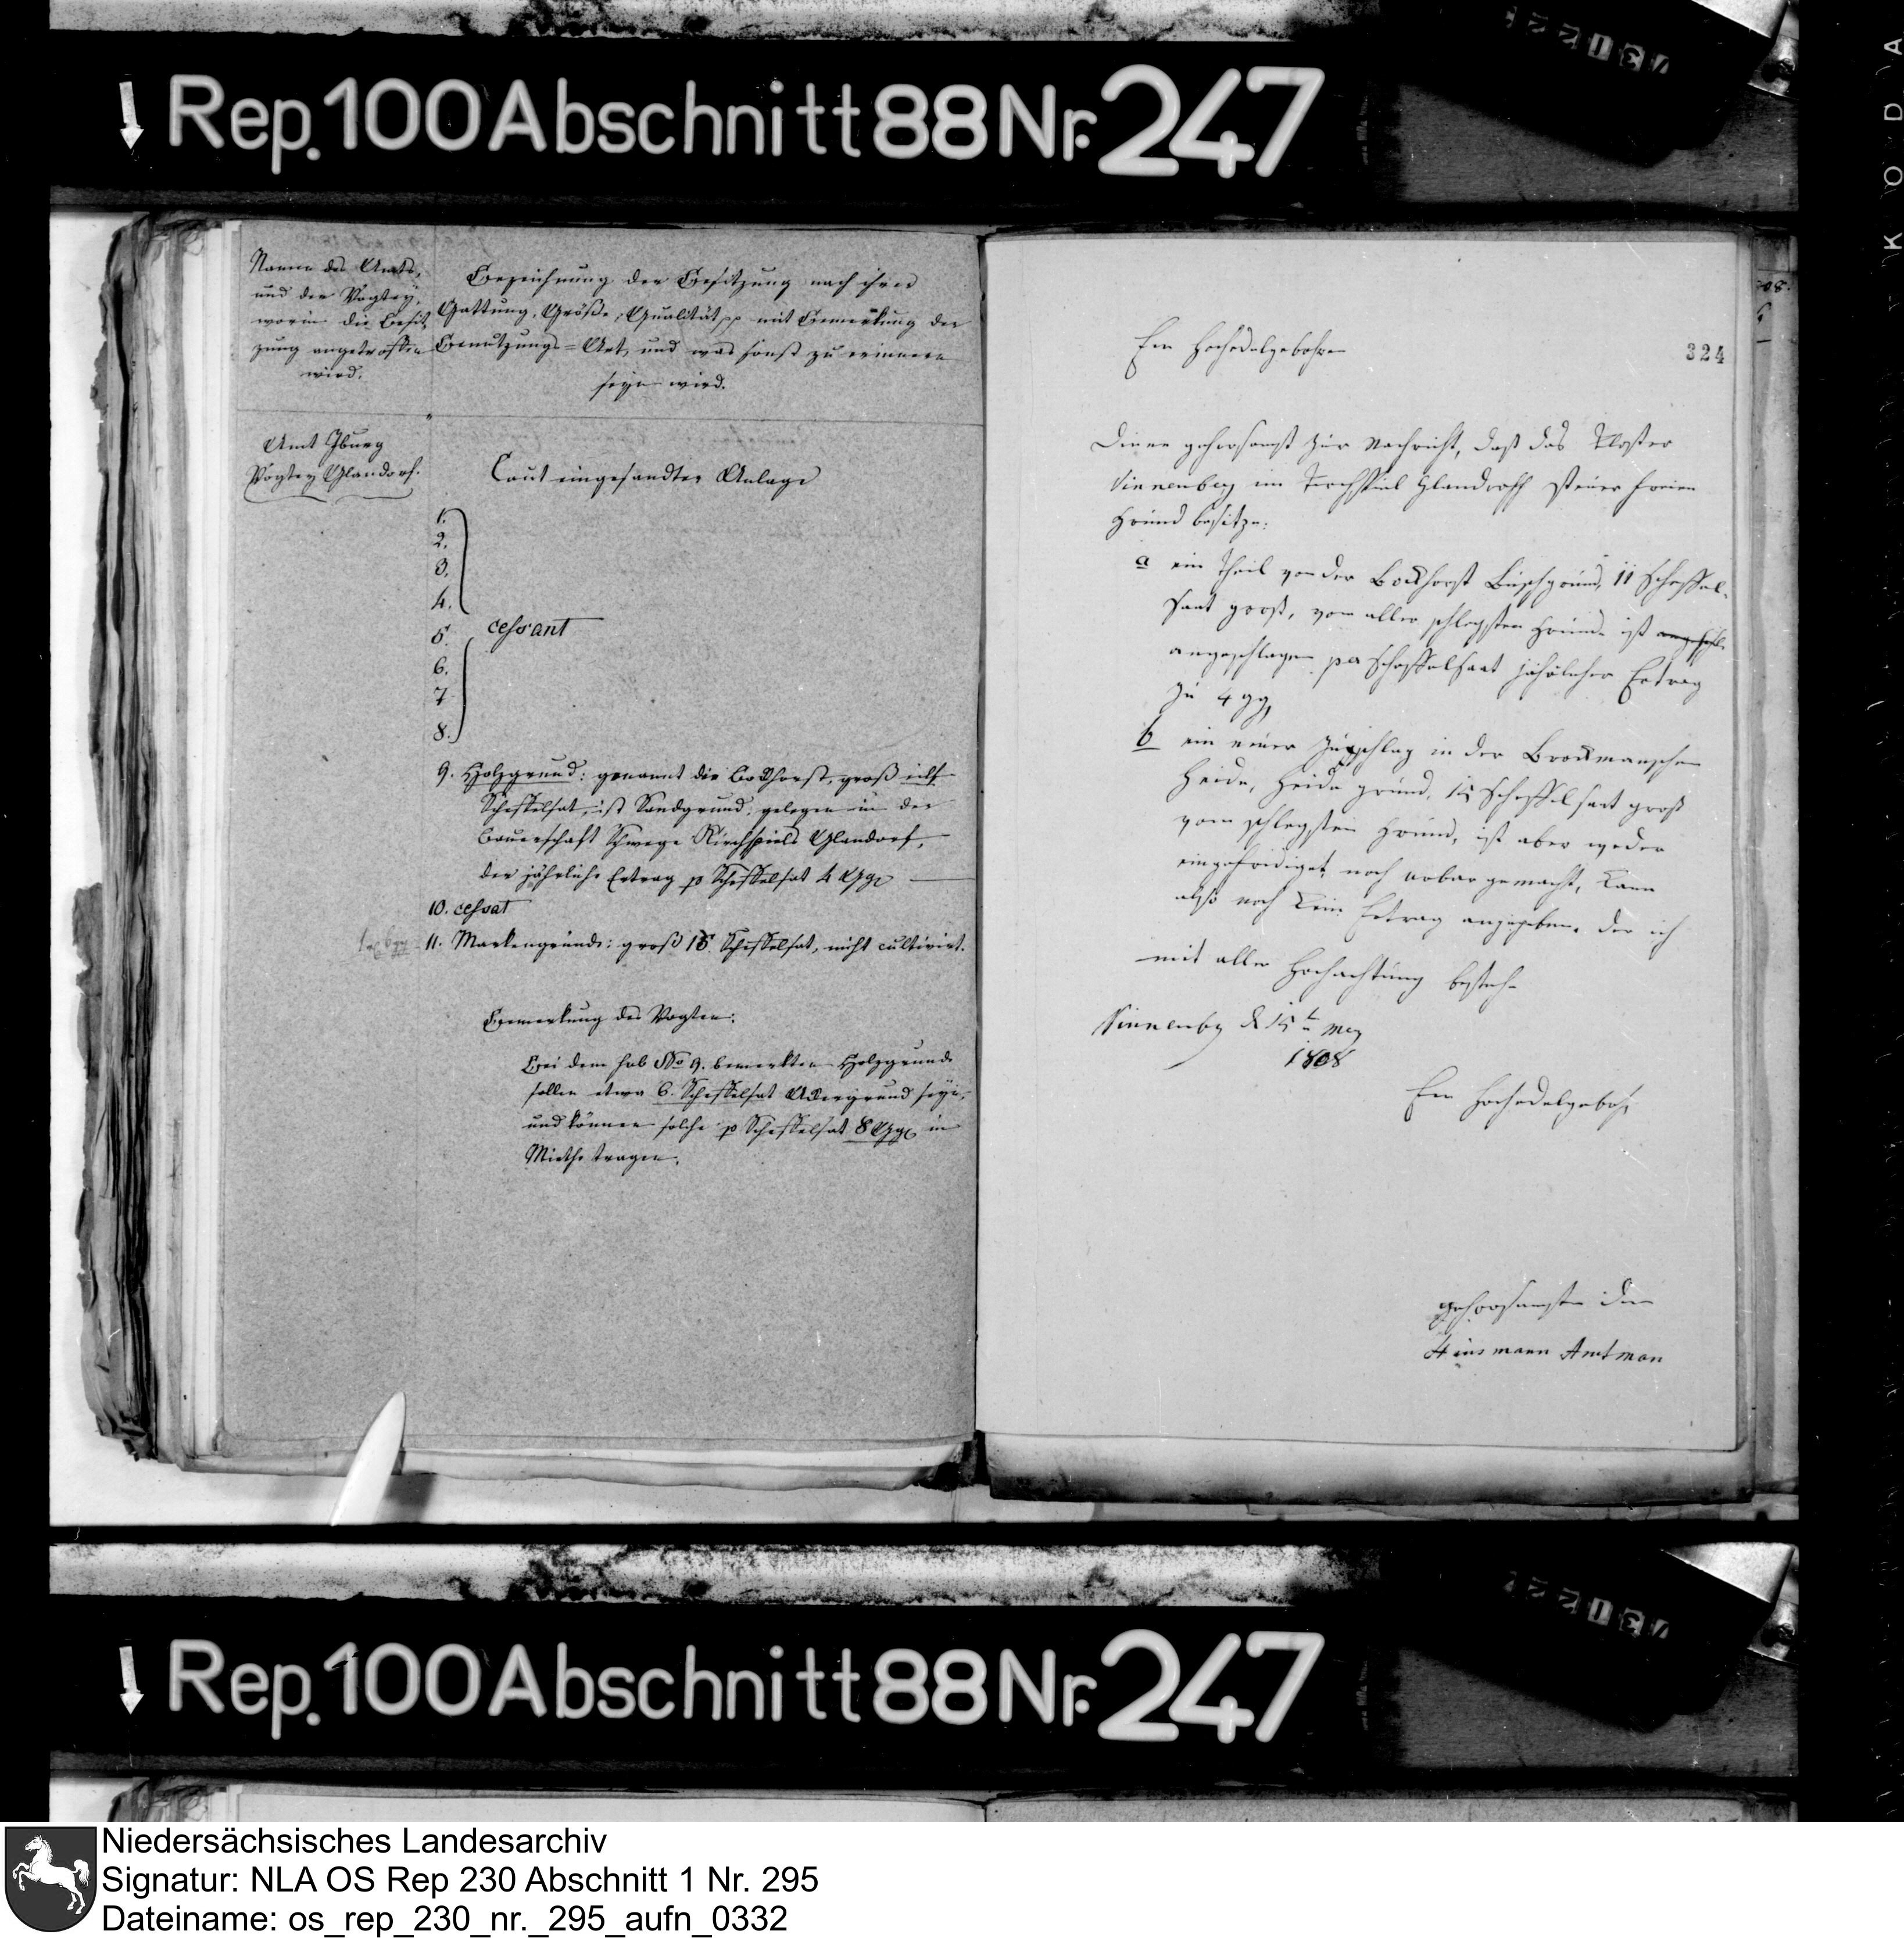 Rep. 100 Abschnitt 88 Nr. 247
Name des Amts,
und der Vogtey,
worin die Besit
zung angetroffen
wird.
Bezeichnung der Besitzung nach ihrer
Gattung, Größe, Qualität pp mit Bemerkung der
Benutzungs=Art, und was sonst zu erinnern
seyn wird.
Amt Iburg
Vogtey Glandorf.
Laut eingesandter Anlage
1.
2.
3.
4.
5.
cessant
6.
7
8.
9. Holzgrund: genannt die Bockhorst, groß eilf
Scheffelsat, ist Sandgrund, gelegen in der
Bauerschaft Schwege Kirchspiels Glandorf,
der jährliche Ertrag p Scheffelsat 4 Ggr
10. cessat
11. Markengrund: groß 15. Scheffelsat, nicht cultivirt.
Bemerkung des Vogten:
Bei dem sub No 9. bemerkten Holzgrunde
sollen etwa 6. Scheffelsat Ackergrund seyn,
und können solche p Scheffelsat 8 Ggr in
Miethe tragen.
324
Ew Hochedelgebohren
Diene gehorsamst zur Nachricht, daß das Kloster
Vinnenberg im Kirchspiel Glandorff steuer freien
Grund besitze:
a ein Theil von der Bockhorst Buschgrund, 11 Scheffel-
saat groß, vom aller schlegsten Grunde ist
angeschlagen per Scheffelsaat jährlicher Ertrag
zu 4 gg
b ein neuer Zuschlag in der Brockmanschen
Heide, Heide grund, 15 Scheffelsaat groß
vom schlegsten Grund, ist aber weder
eingefridiget, noch urbar gemacht, kann
also noch kein Ertrag angegeben. der ich
mit aller Hochachtung bestehe
Vinnenbg d 15t May
1808
Ew Hochedelgebohr
gehorsamster Dr
Hinsmann Amtman
Rep. 100 Abschnitt 88 Nr. 247
Niedersächsisches Landesarchiv
Signatur: NLA OS Rep 230 Abschnitt 1 Nr. 295
Dateiname: os_rep_230_nr._295_aufn_0332
KODA